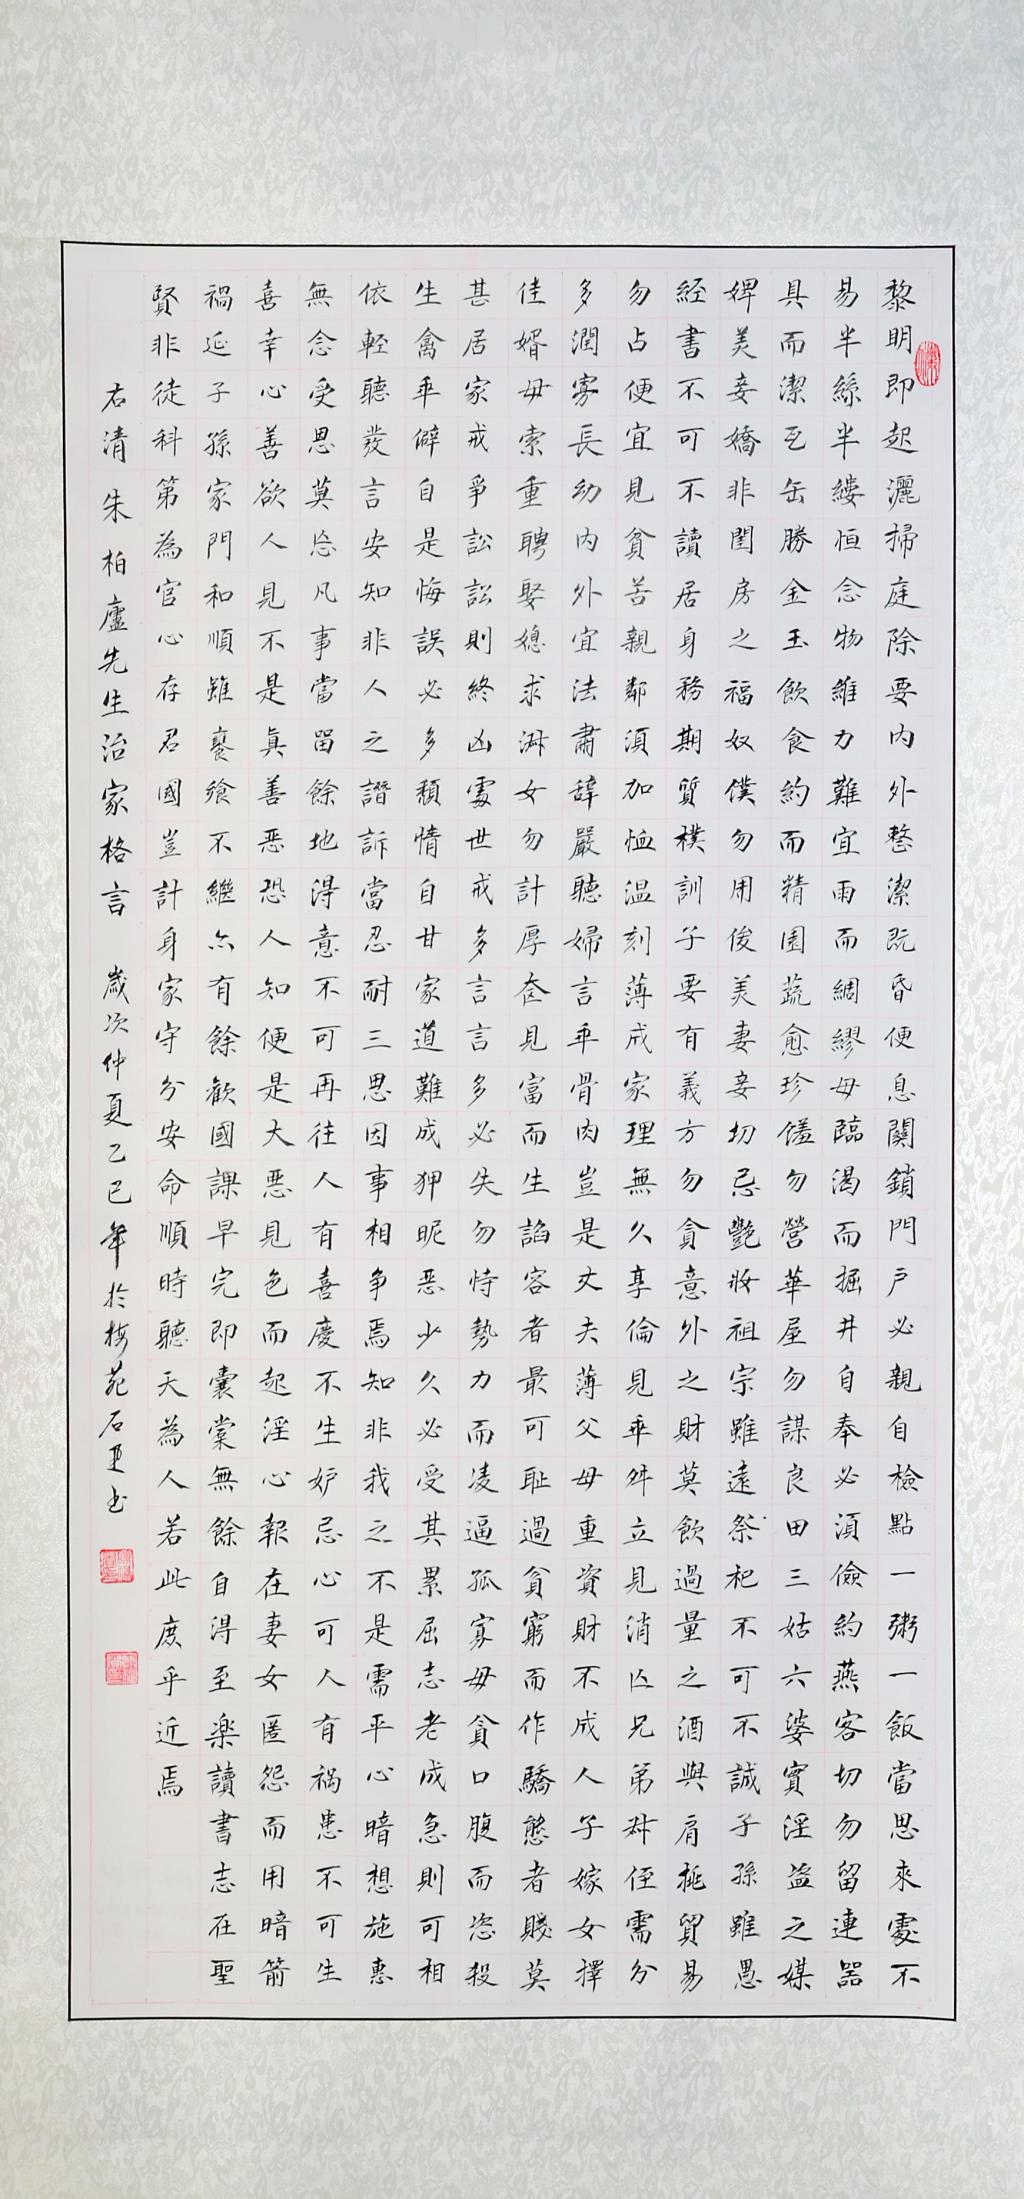 黎明即起灑掃庭除要內外整潔既昏便息關鎖門戶必親自檢點一粥一飯當思來處不
易半絲半縷恒念物維力難宜雨而綢繆毋臨渴而掘井自奉必須儉約燕客切勿留連器
具而潔瓦缶勝金玉飲食約而精園蔬愈珍饈勿營華屋勿謀良田三姑六婆實淫盜之媒
婢美妾嬌非閨房之福奴僕勿用俊美妻妾切忌艷妝祖宗雖遠祭祀不可不誠子孫雖愚
經書不可不讀居身務期質樸訓子要有義方勿貪意外之財莫飲過量之酒與肩挑貿易
勿占便宜見貧苦親鄰須加恤溫刻薄成家理無久享倫見乖舛立見消亡兄弟叔侄需分
多潤寡長幼內外宜法肅辭嚴聽婦言乖骨肉豈是丈夫薄父母重資財不成人子嫁女擇
佳婿毋索重聘娶媳求淑女勿計厚奩見富而生諂容者最可恥過貧窮而作驕態者賤莫
甚居家戒爭訟訟則終凶處世戒多言言多必失勿恃勢力而凌逼孤寡毋貪口腹而恣殺
生禽乖僻自是悔誤必多頹惰自甘家道難成狎昵惡少久必受其累屈志老成急則可相
依輕聽發言安知非人之譖訴當忍耐三思因事相爭焉知非我之不是需平心暗想施惠
無念受恩莫忘凡事當留餘地得意不可再往人有喜慶不生妒忌心可人有禍患不可生
喜幸心善欲人見不是真善惡恐人知便是大惡見色而起淫心報在妻女匿怨而用暗箭
禍延子孫家門和順雖饔飧不繼亦有餘歡國課早完即囊橐無餘自得至樂讀書志在聖
賢非徒科第為官心存君國豈計身家守分安命順時聽天為人若此庶乎近焉
右清朱柏廬先生治家格言 歲次仲夏乙巳年於梅苑石書